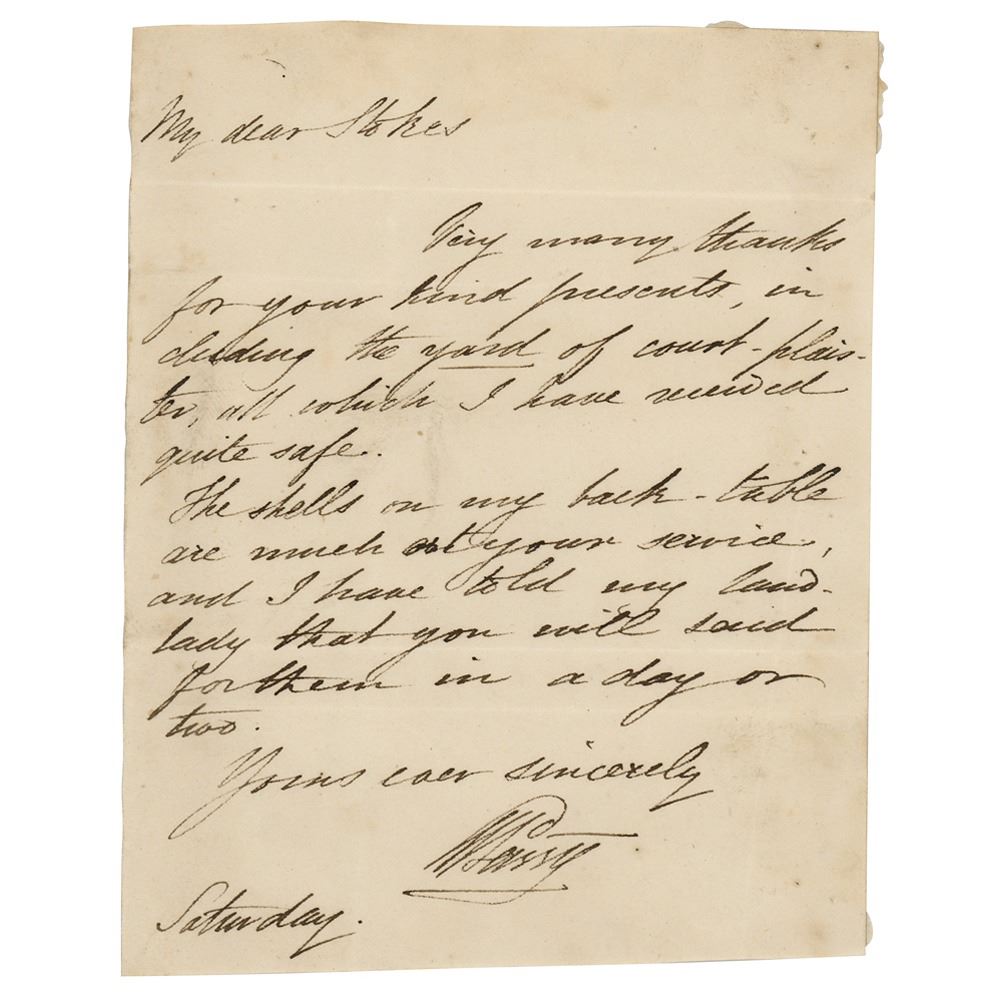 My dear Stokes
Very many thanks
for your kind presents, in
cluding the yard of court-plais-
ter, all which I have received
quite safe.
The shells on my back-table
are much at your service,
and I have told my land-
lady that you will send
for them in a day or
two.
Yours ever sincerely
WParry
Saturday.